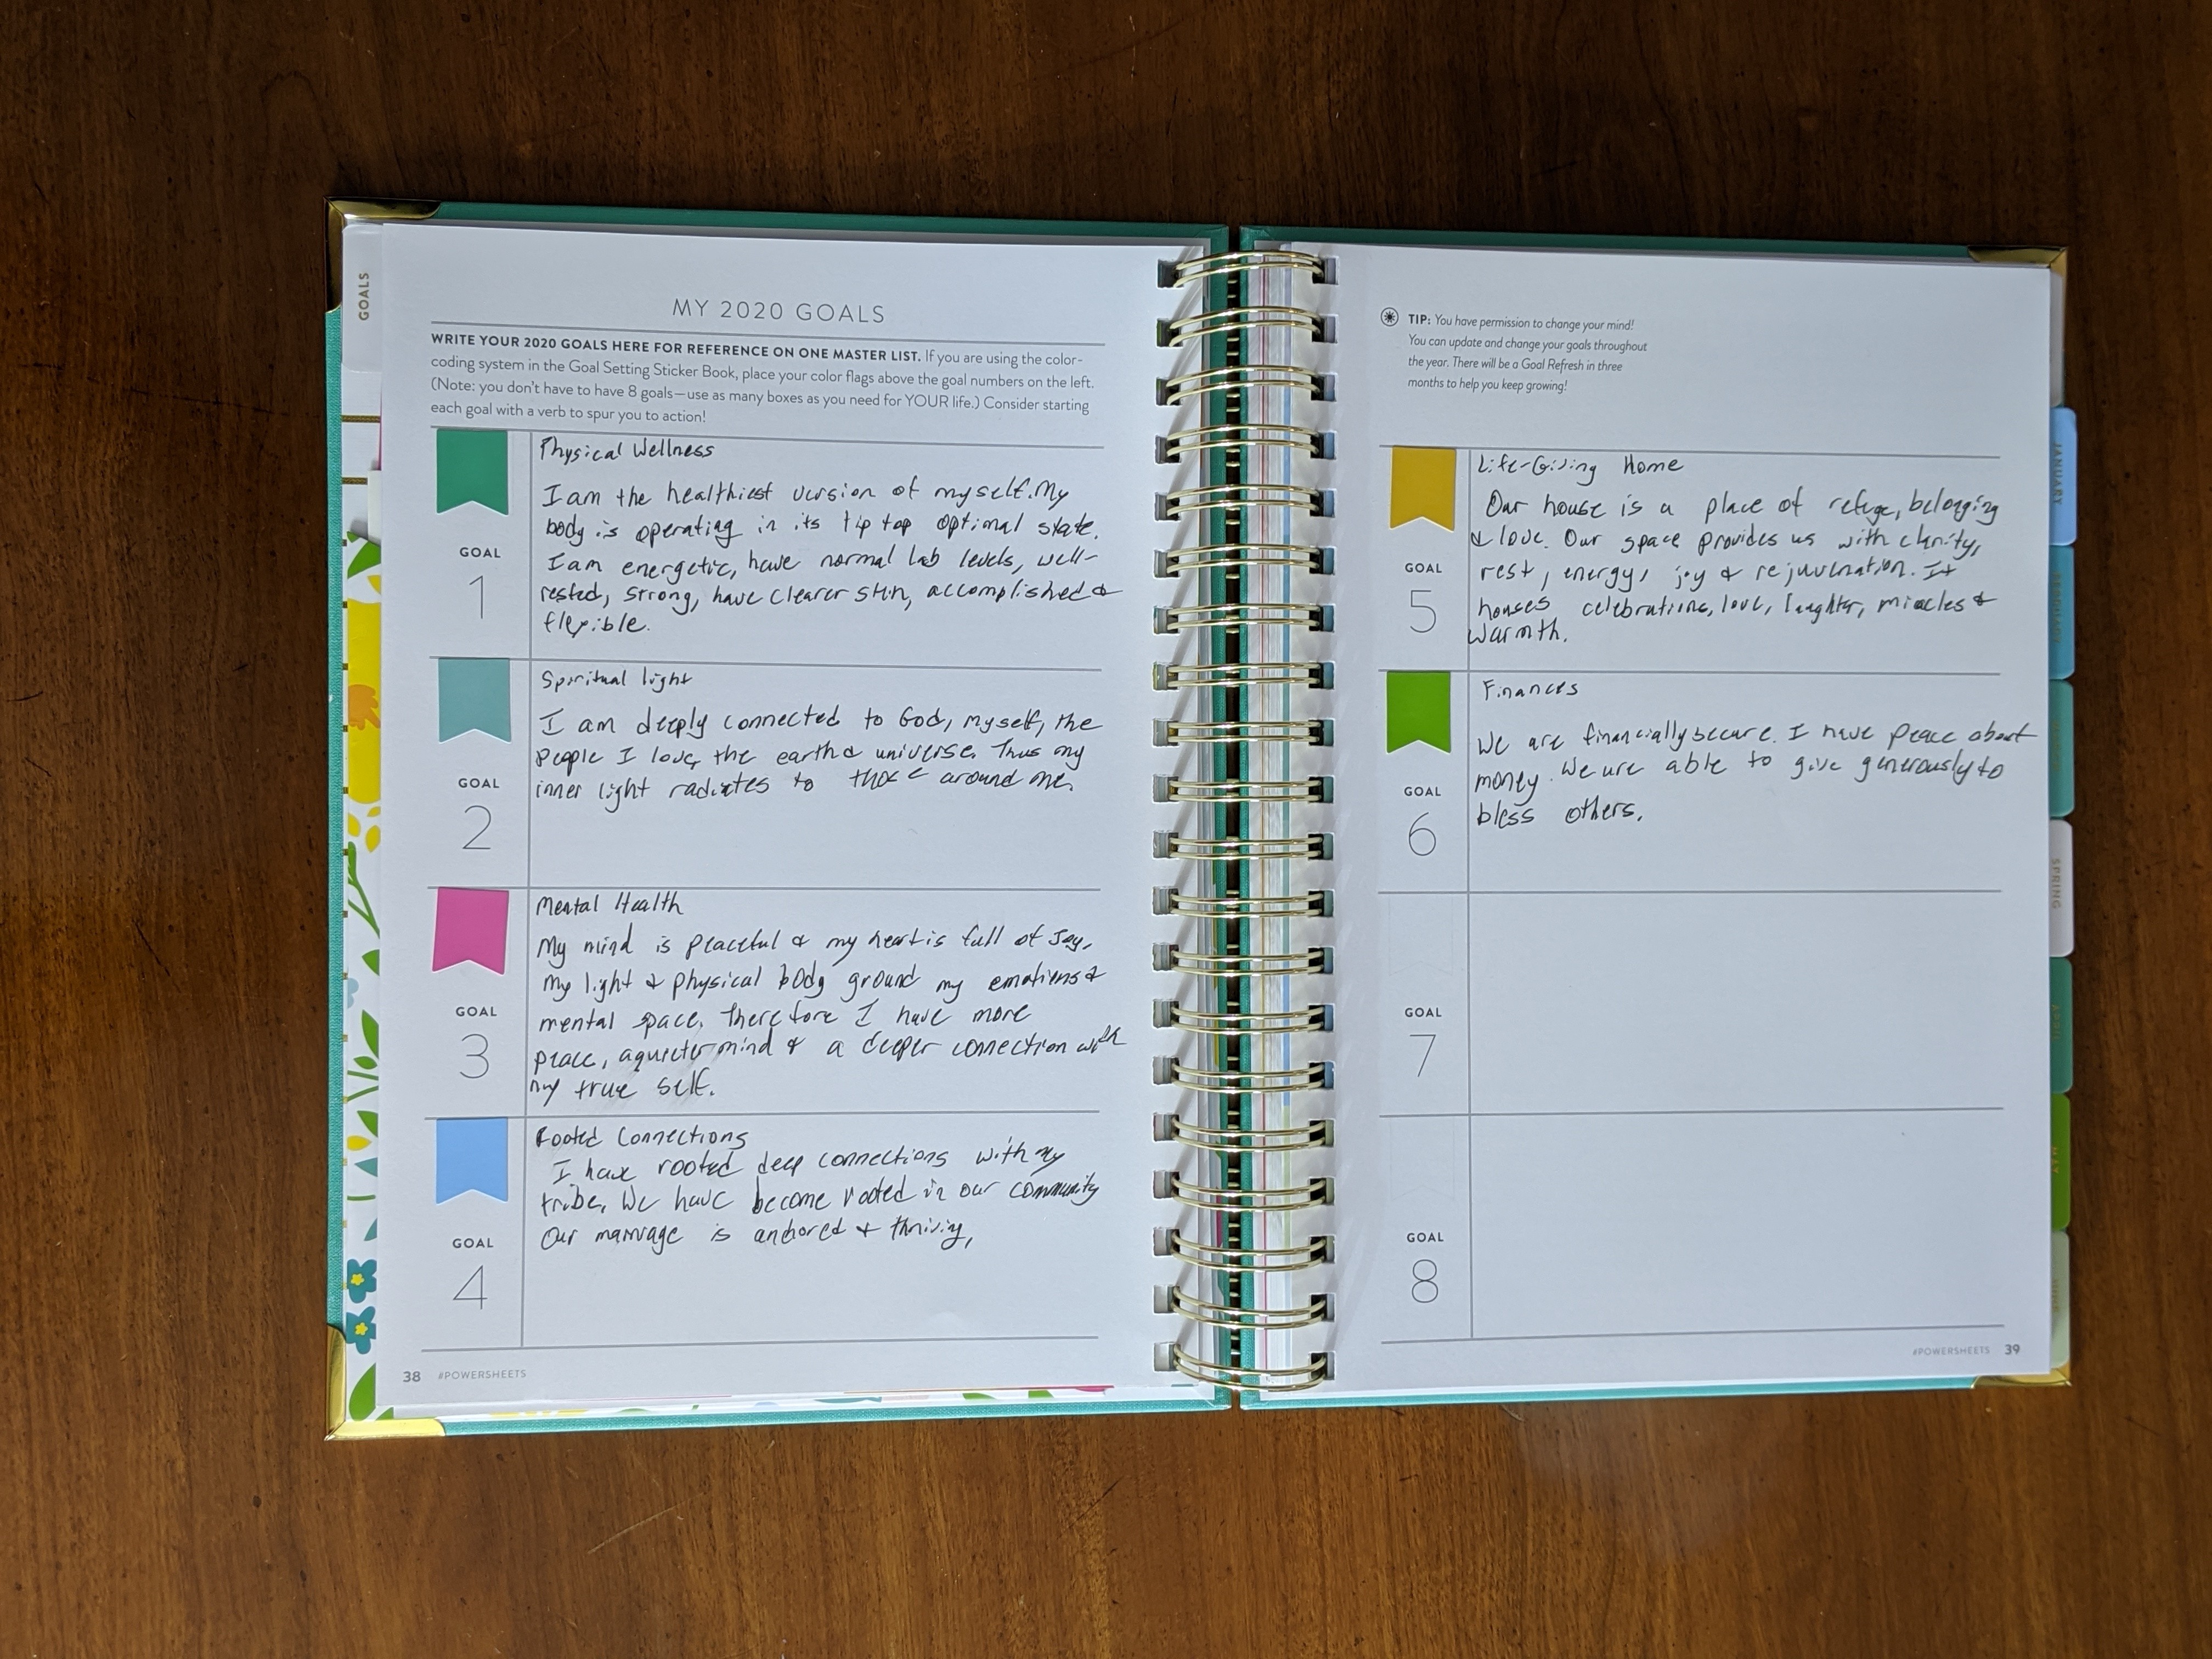 GOALS
MY 2020 GOALS
WRITE YOUR 2020 GOALS HERE FOR REFERENCE ON ONE MASTER LIST. If you are using the color-
coding system in the Goal Setting Sticker Book, place your color flags above the goal numbers on the left.
(Note: you don't have to have 8 goals—use as many boxes as you need for YOUR life.) Consider starting
each goal with a verb to spur you to action!
GOAL
1
Physical Wellness
I am the healthiest version of myself. My
body is operating in its tip top optimal state.
I am energetic, have normal lab levels, well-
rested, strong, have clearer skin, accomplished &
flexible.
GOAL
2
Spiritual light
I am deeply connected to God, myself, the
people I love, the earth & universe. Thus my
inner light radiates to those around me.
GOAL
3
Mental Health
My mind is peaceful & my heart is full of Joy.
My light & physical body ground my emotions &
mental space. Therefore I have more
peace, a quieter mind & a deeper connection with
my true self.
GOAL
4
Rooted Connections
I have rooted deep connections with my
tribe. We have become rooted in our community
Our marriage is anchored & thriving.
38 #POWERSHEETS
TIP: You have permission to change your mind!
You can update and change your goals throughout
the year. There will be a Goal Refresh in three
months to help you keep growing!
GOAL
5
Life-Giving Home
Our house is a place of refuge, belonging
& love. Our space provides us with clarity,
rest, energy, joy & rejuvenation. It
houses celebrations, love, laughter, miracles &
warmth.
GOAL
6
Finances
We are financially secure. I have peace about
money. We are able to give generously to
bless others.
GOAL
7
GOAL
8
#POWERSHEETS 39
JANUARY
FEBRUARY
SPRING
APRIL
MAY